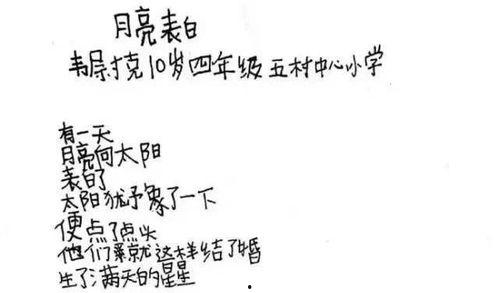 月亮表白
韦尉克10岁四年级五村中心小学
有一天
月亮向太阳
表白了
太阳犹予象了一下
便点了点头
他们就这样结了婚
生了满天的星星